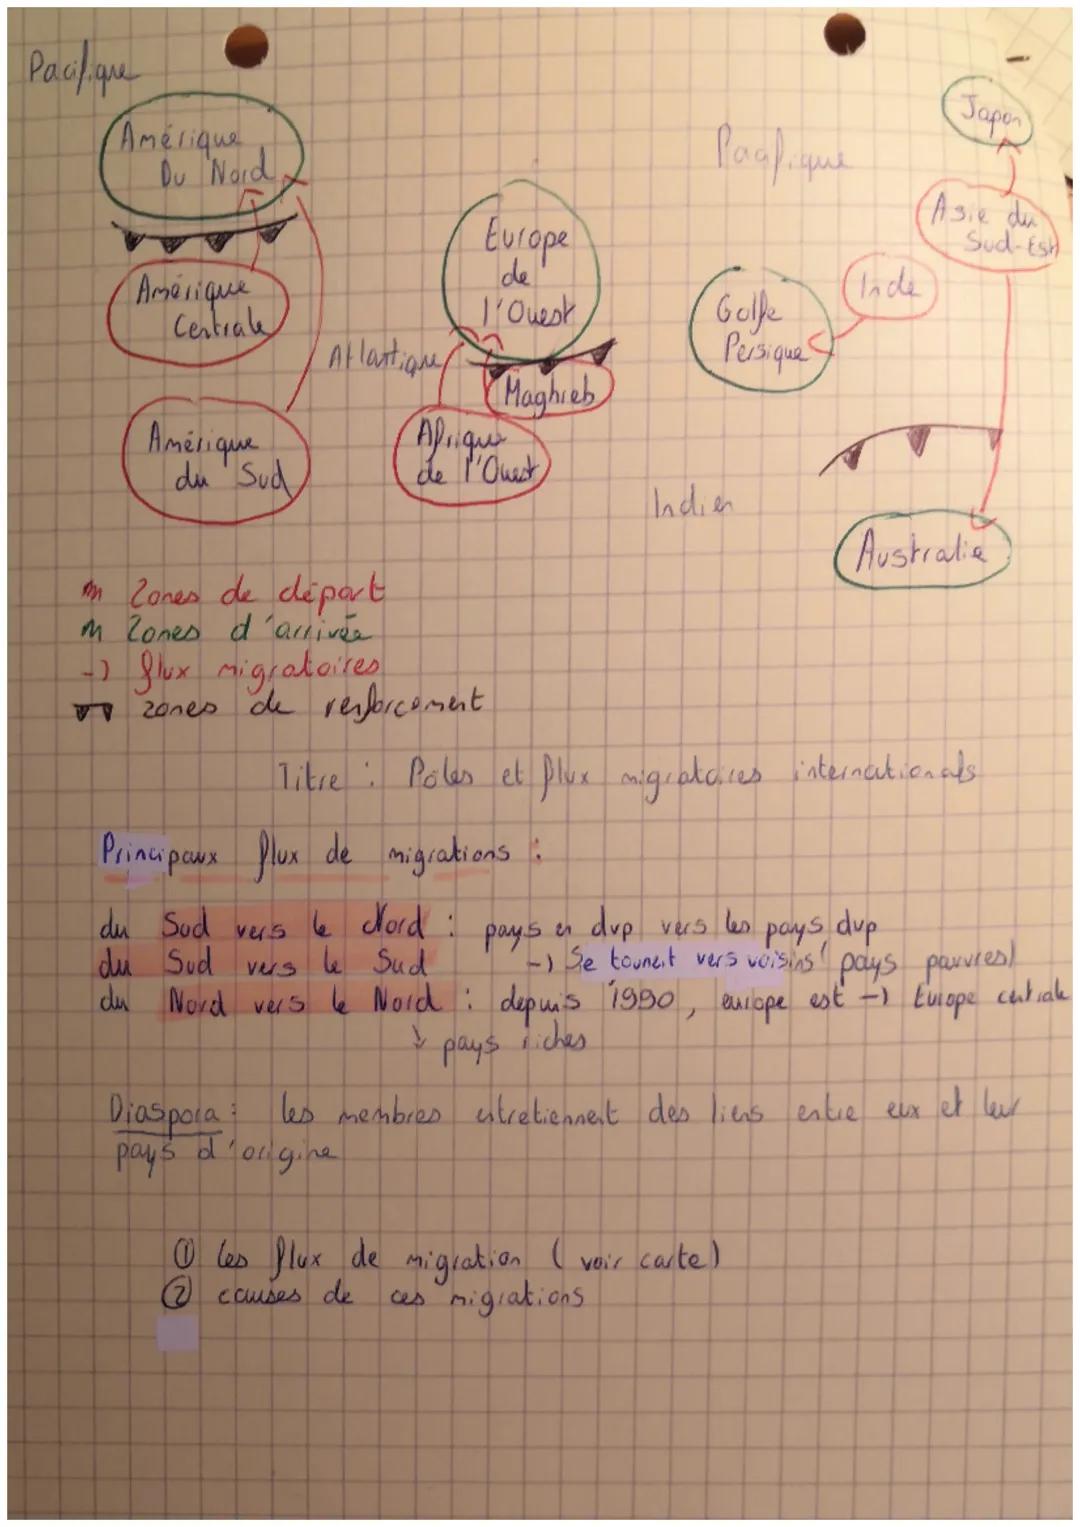 Pacifique
Amérique
Du Nord
Japon
Pacifique
Asie du
Sud-Est
Europe
de
l'Ouest
Amérique
Centrale
Inde
Golfe
Persique
Atlantique
Maghreb
Amérique
du Sud
Afrique
de l'Ouest
Indien
Australie
Zones de départ
Zones d'arrivée
-) flux migratoires
zones de renforcement
Titre : Pôles et flux migratoires internationals
Principaux flux de migrations :
du Sud vers le Nord : pays en dvp vers les pays dvp
du Sud vers le Sud -) Se tournent vers voisins (pays pauvres)
du Nord vers le Nord : depuis 1990, europe est -) Europe centrale
↓ pays riches
Diaspora : les membres entretiennent des liens entre eux et leur
pays d'origine
① les flux de migration (voir carte)
② causes de ces migrations